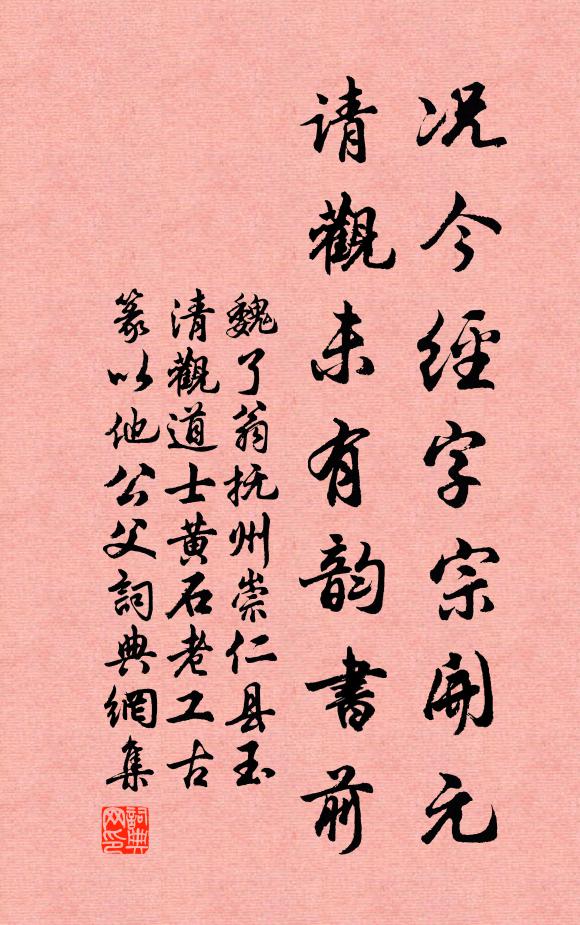 况今經字宗開元
请觀未有韵書前
魏了翁抚州崇仁县玉
清觀道士黄石老工古
篆以他公父詞典網集
詞典
网印